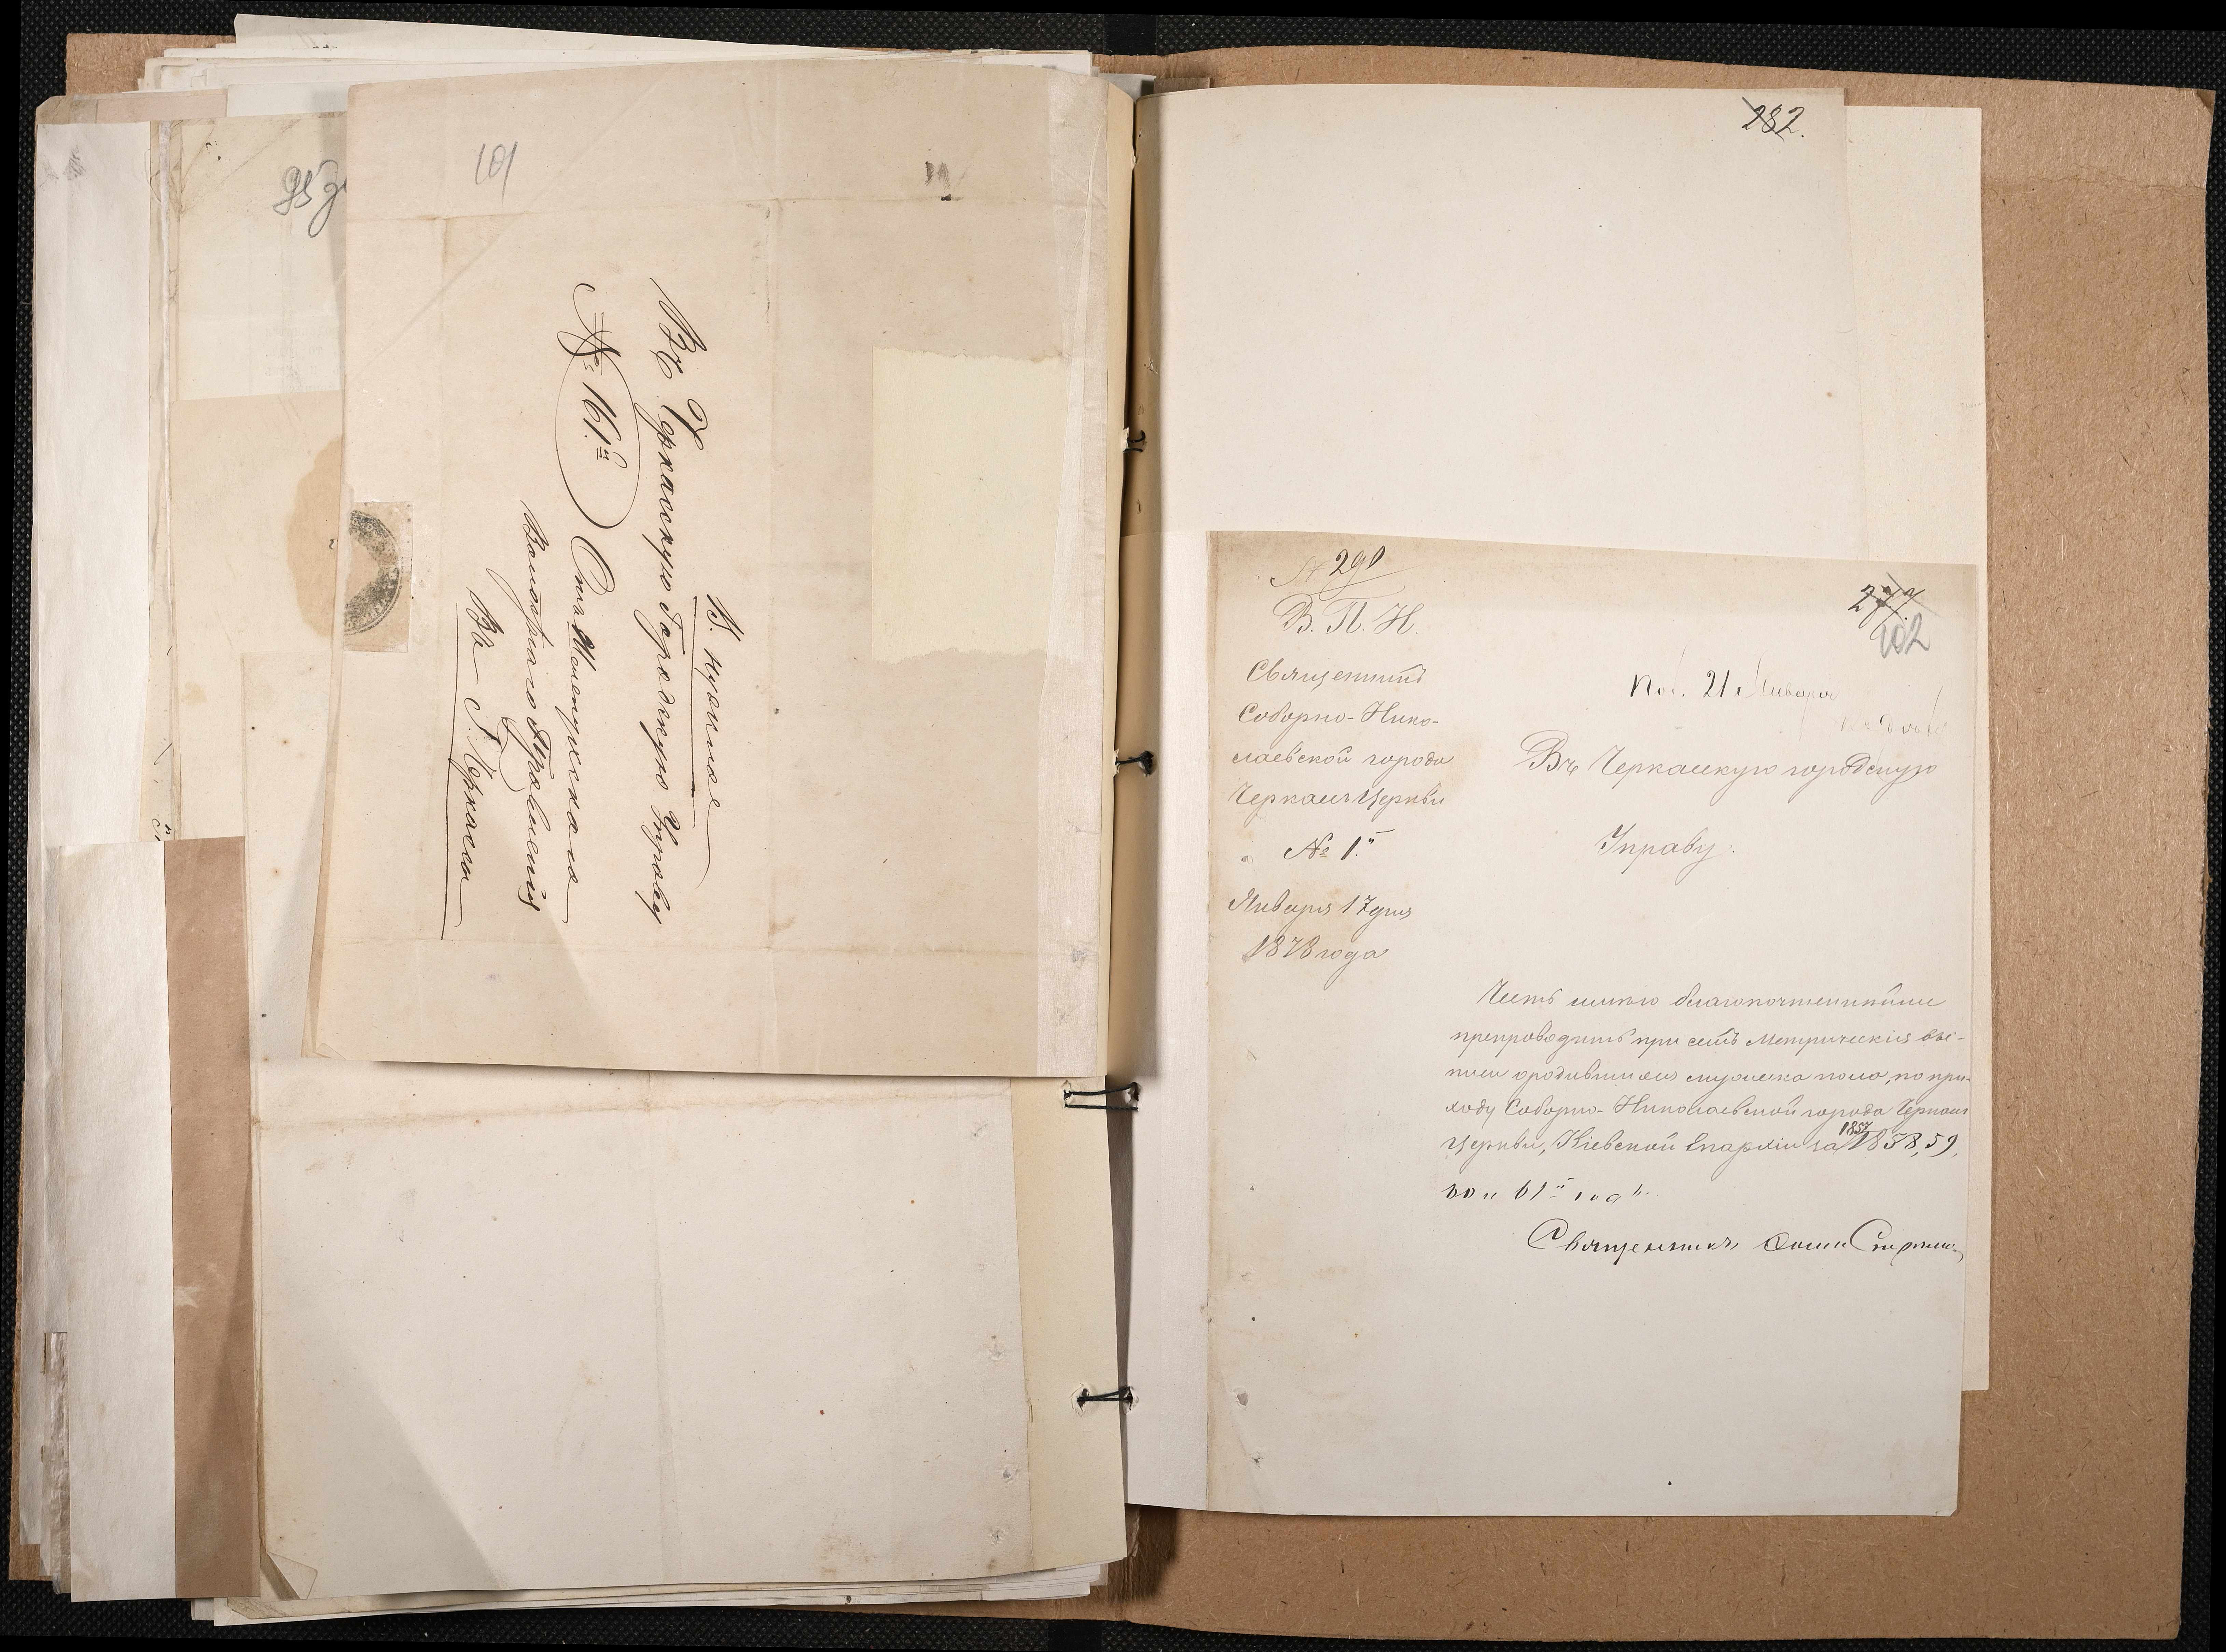 101
В. нужное
Въ Черкасскую Городскую Управу
№ 161.й Отъ
Волостнаго Правленія
Въ Г. Черкассы
282.
№ 290
В. П. И.
Священникъ
Соборно-Нико-
лаевской города
Черкасъ Церкви
№ 1."
Января 17 дня
1878 года
277.
102
Пол. 21 Января
Въ Черкаскую городскую
Управу.
Честь имѣю благопочтеннѣйше
препроводить при семъ Метрическія вы-
писи о родившихся мужеска пола, по при-
ходу Соборно-Николаевской города Черкасъ
Церкви, Кіевской Епархіи за 1857 1858, 59,
60 и 61" годъ.
Священникъ